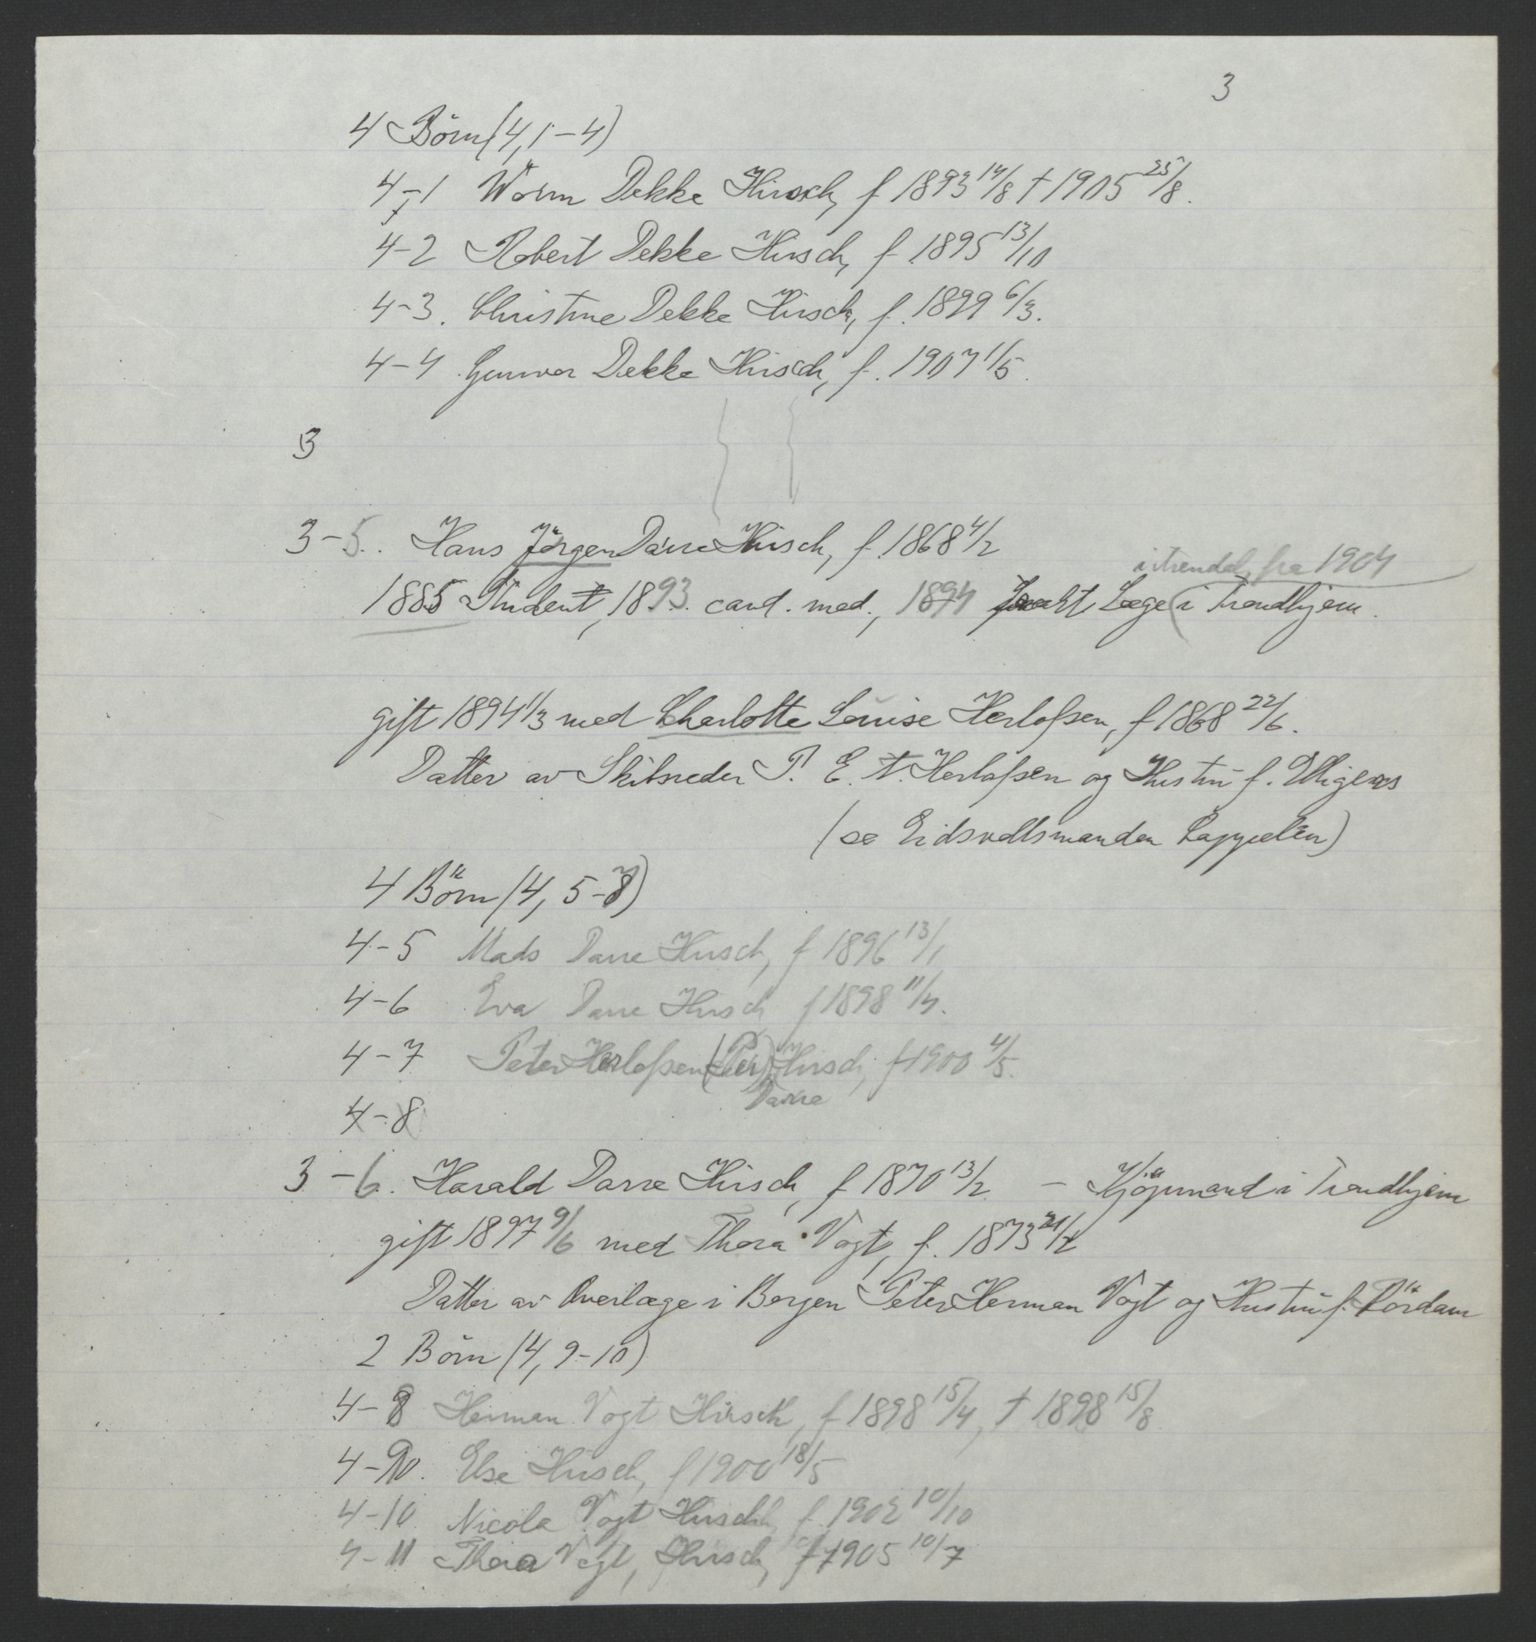 3
4 Börn (4, 1-4)
4-1 Worm Dekke Hirsch, f 1893 14/8 † 1905 25/8.
4-2 Robert Dekke Hirsch, f 1895 13/10
4-3. Christine Dekke Hirsch, f. 1899 6/3.
4-4 Gunvor Dekke Hirsch, f. 1907 1/5.
3
3-5. Hans Jörgen Darre Hirsch, f. 1868 4/2
i Trondhj. fra 1904
1885 Student, 1893 cand. med., 1894 Læge (i Trondhjem.
gift 1894 1/3 med Charlotte Louise Herlofsen, f 1868 22/6.
Datter av Skibsreder P. E. A. Herlofsen og Hustru f.
(se Eidsvollsmanden Cappelen)
4 Börn (4, 5-8)
4-5 Mads Darre Hirsch, f 1896 13/1
4-6 Eva Darre Hirsch f 1898 11/4.
4-7 Peter Herlofsen (Per) Hirsch, f 1900 4/5.
Darre
4-8
3-6. Harald Darre Hirsch, f 1870 13/2 - Kjöpmand i Trondhjem
gift 1897 9/6 med Thora Vogt, f. 1873 21/2
Datter av Overlæge i Bergen Peter Herman Vogt og Hustru f. Rördam
2 Börn (4, 9-10)
4-8 Herman Vogt Hirsch, f 1898 15/4, † 1898 15/8
4-9. Else Hirsch, f 1900 18/5
4-10 Nicola Vogt Hirsch, f. 1902 10/10
4-11 Thora Vogt, Hirsch, f 1905 10/7